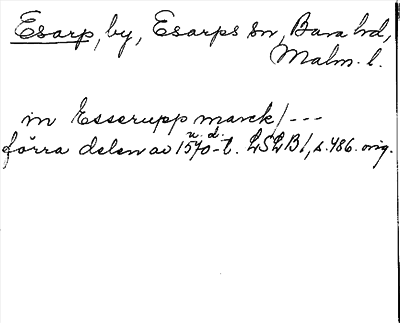 Esarp, by, Esarps sn, Bara hd,
Malm. l.
in Esserupp marck / ---
u. d.
förra delen av 1570-t. LSLB1, s. 486. orig.